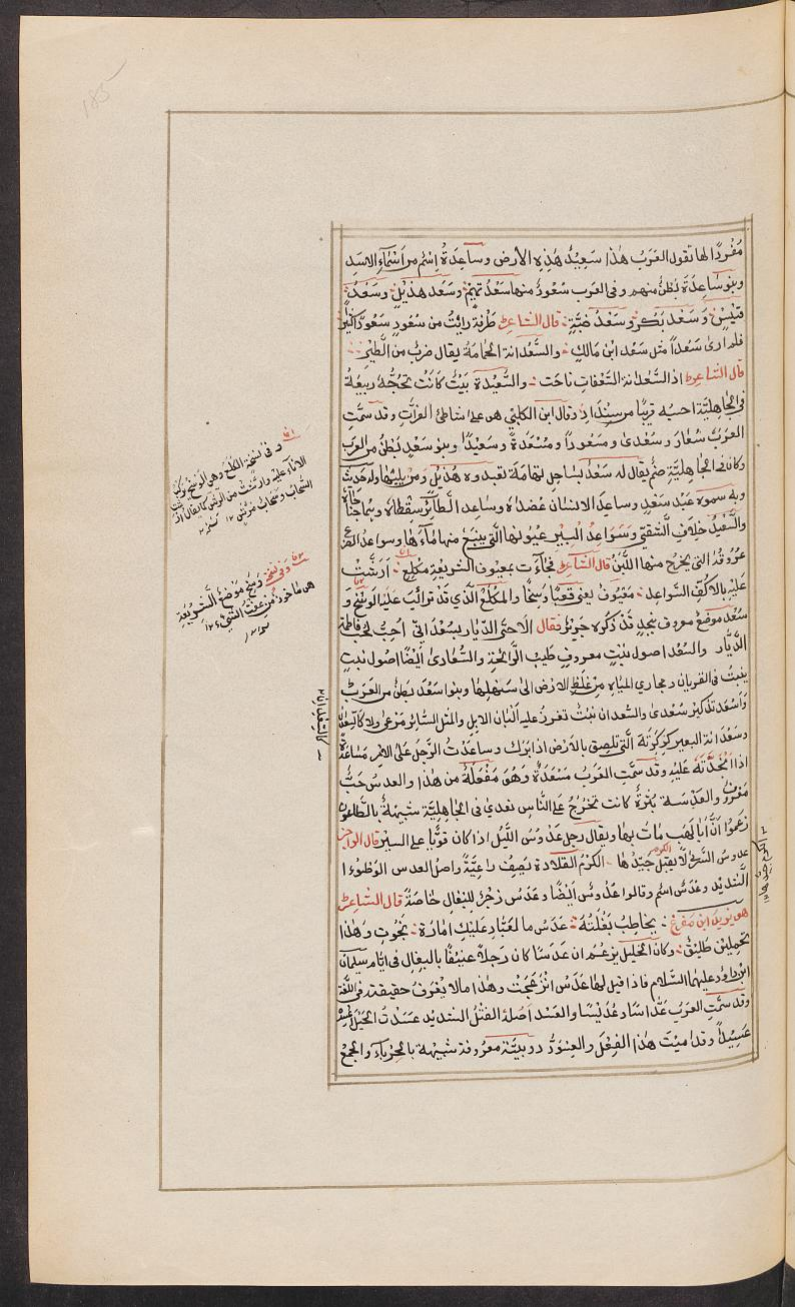 185
مُفْردًا لها تقول العَرَبُ هٰذا سَعِيدُ هٰذِهِ الأرض وساعِدَةُ اسْم من اَسْمَآءِ الاسَدِ
وبنو سَاعِدَةَ بَطْنٌ منهم وفى العرب سُعُودٌ منها سَعْدُ تَمِيْمٍ وسَعْد هذيلٍ وسَعْدُ
قيسٍ وَسَعْد بَكْرٍ وسَعْدُ ضَبَّةَ قال الشاعرُ طَرَفَة رايْتُ من سُعُودٍ سَعُودًا كثيرًا
فلم ارى سَعْداً مثل سَعْد ابْن مَالكٍ والسَّعْدانة الحَمَامَةُ يقال ضربٌ من الطَّيْرِ
قال الشاعرُ اذا السَّعْدانة السَّعَفات ناحَت والسُّعَيْدة بَيْتٌ كانَتْ تَحُجُّهُ رَبِيعَةُ
فى الجاهليّة احسبه قريبًا من سِنْدادٍ وقال ابن الكلبى هو على شاطئ الفراتِ وقد سَمَّتِ
العَرَبُ سُعادَ وسُعْدىَ ومَسْعُوداً ومُسْعَدةً وسَعِيْدًا وبنو سَعْدٍ بَطْنٌ من العرب
وكان فى الجاهِليَّةِ صَنَمٌ يقال له سَعْدٌ بسَاحِلِ تهامَة تعبده هُذَيْل ومن يليها وله حديث
وبه سموه عَبْد سَعْدٍ وساعِدَ الانسان عَضُداهُ وساعِد الطَّائرِ سِقْطاهُ وهما جناحاه
والسَّعِيْدُ خلافُ الشقىّ وسَوَاعدُ البِير عيُونها الَّتى ينبع منها مَاءُها وسواعدُ الضرع
عُرُوقُهُ التى يخرُج منها اللَّبَنُ قال الشاعرُ فجاءَت بمعيُوفِ الشريعَةِ مُكْلِعٍ اَرَشَّتْ
عَلَيْهِ بالاكفِّ السَّواعِد مَعْيُوفٌ يعنى قَعْبًا وَسِخًا والمُكْلَعُ الَّذى قدْ تراكَبَ عَلَيْهِ الوَسَخُ و
سُعْد موضعٌ معروف بنجدٍ قدْ ذكره جَرِيرٌ فقال الا حىّ الدّيار بسُعْدَ اِنّى اُحِبُّ لحُبِّ فاطمة
الدِّيار والسُّعْد اصول نبْتٍ معروفٍ طيب الرَّائحَةِ والسُّعَادىَ اَيْضًا اصُول نبتٍ
ينبتُ فى القريان ومجارى المِيَاهِ من غِلَظِ الارضِ الى سَهْلِها وبنو اَسْعَد بَطْنٌ من العَرَب
واَسْعَد تذكير سُعْدى والسَّعدان نبْتٌ تغزر عليه اَلْبَان الابِل والمثل السائر مَرْعىً ولا كالسعدان
وسَعْدانة البعير كِرْكِرَتُهُ الَّتى تلصق بالارْضِ اذا بَرَك وساعَدْتُ الرَّجلَ عَلَى الامْرِ مُسَاعَدَةً
اذا اَنْجَدْتَهُ عَلَيْهِ وقد سَمَّتِ العَرَبُ مَسْعَدَةَ وَهُوَ مَفْعَلَةٌ من هٰذا والعدسُ حَبٌّ
مَعْرُوْف والعَدَسَة بَثْرَةٌ كانت تَخْرُجُ عَلَى النّاسِ تعدى فى الجاهليَّة شبِيْهَةٌ بالطاعون
زعَمُوا اَنَّ اَبا لَهَب مَاتَ بها ويقال رجل عَدُوسُ اللَّيْل اذا كان قويًّا على السيرِ قال الراجز
عدوسُ السُّرَى لَا يَقْبَلُ الكرمَ جِيْدُها الكَرْمُ القلادة يَصِف راعِيَةً واصل العدس الوَطْوءُ ا
الشديد وعُدَسٌ اسْم وقالوا عُدُوسٌ ايْضًا وعَدَسْ زجْرٌ للبِغالِ خاصَّةً قال الشاعرُ
هو يزيد ابن مفرّغ يخاطِبُ بَغْلَتَهُ عَدَسْ مَا لعَبَّادٍ عَلَيْكِ امَارةٌ نَجَوْتِ وَهٰذا
تَحْمِلِيْنَ طَلِيْقُ وكان الخليل يزعُم ان عَدَسًا كان رَجلاً عنيفًا بالبغالِ فى ايَّام سليمان
ابن داوُد عليهما السَّلام فاذا قيل لها عَدَسْ انْزَعَجَتْ وهٰذا ما لا يُعْرَفُ حقيقته فى اللغة
وقد سَمَّتِ العَرَبُ عَدَّاسًا وعُدَيْسًا والعَسْد اَصْلهُ الفَتْلُ الشديد عَسَدْتُ الحَبْلَ اعسده
عَسْدًا وقد اميْتَ هٰذا الفِعْلُ والعِسْوَدُّ دويبَّة معروفة شبِيْهة بالحِرْباء والجمعُ
وفى نسخة الكلَعُ وهى الوسخ
الاناء عليه وارشّت من الرش كما يقال ارشّت
السّحابُ وسحاب مُرِشٌّ ١٢
وفى نسخة وسخ موضع الشريعة
هى ماخوذ من عفت الشئ ١٢
كالسعدان
الكرم جيدها ١٢